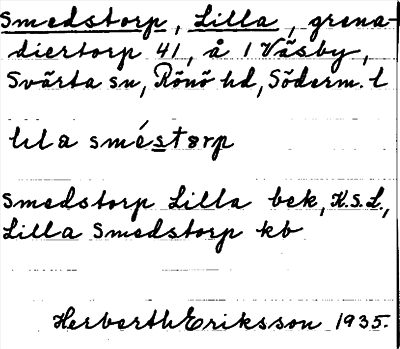 Smedstorp, Lilla, grena-
diertorp 41, å 1 Väsby,
Svärta sn, Rönö hd, Söderm. l
lıla sméstɐrp
Smedstorp Lilla bek, K.S.L.,
Lilla Smedstorp kb
Herberth Eriksson 1935.